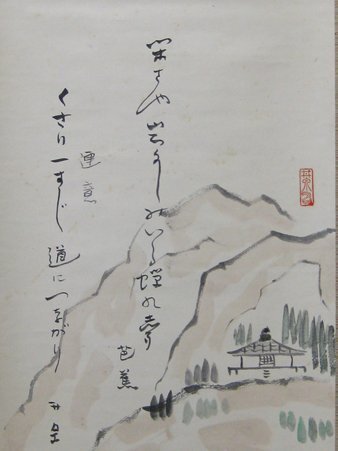 閑さや岩にしみいる蝉の声
芭蕉
くさり一すじ道につながり 井